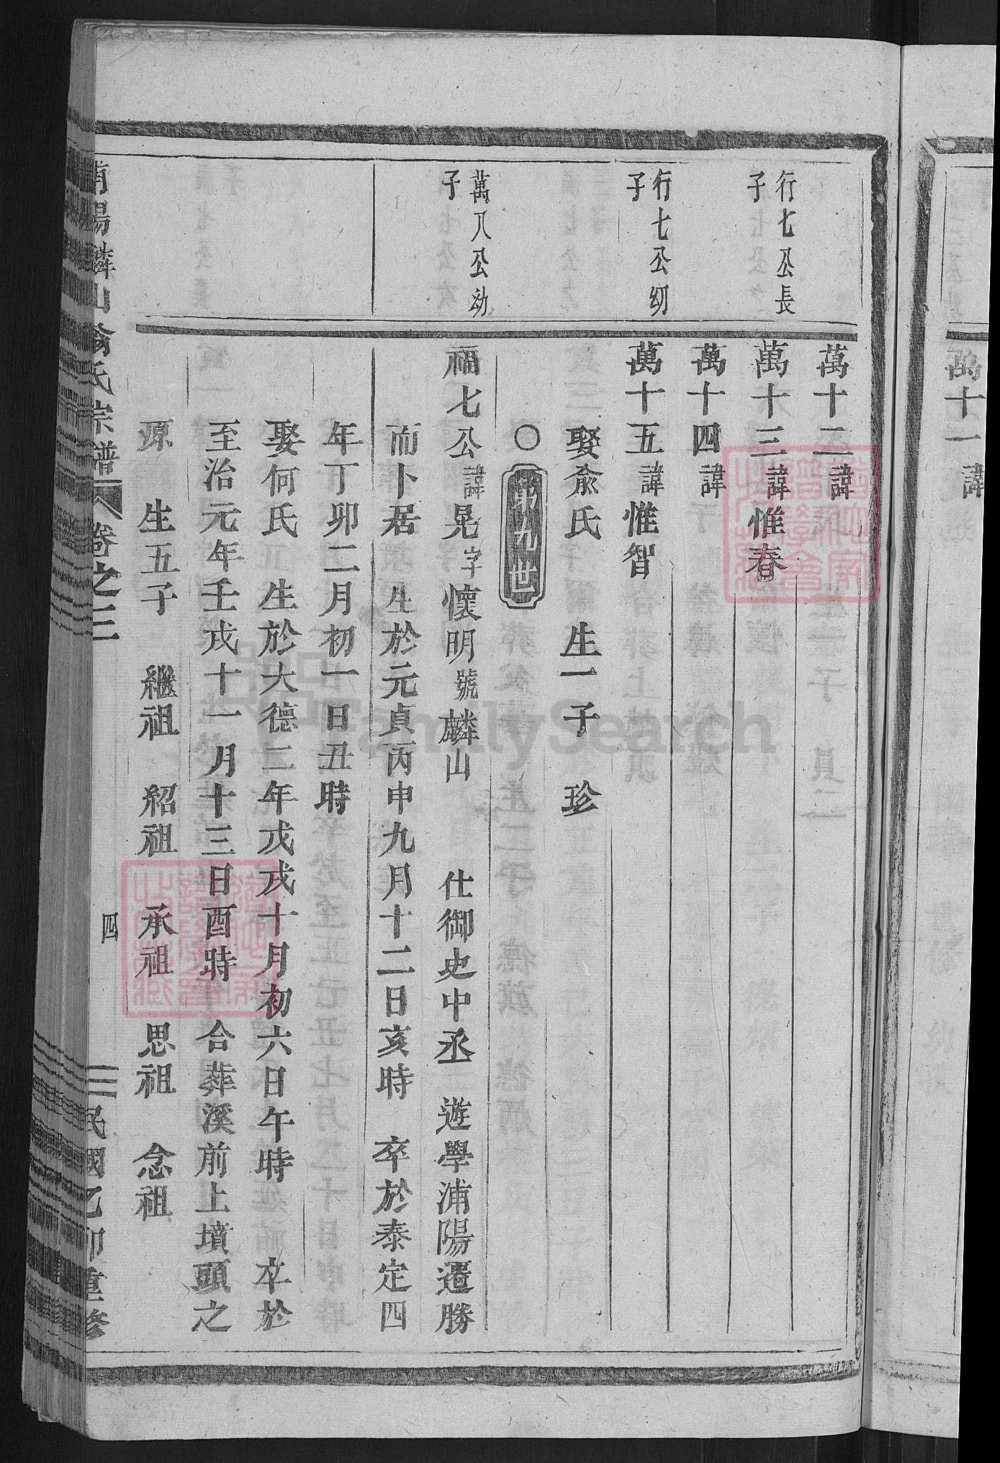 萬十一諱
萬十二諱
行七公長子
萬十三諱惟春
萬十四諱
行七公幼子
萬十五諱惟智
娶俞氏 生一子 珍
○第九世
萬八公幼子
福七公諱晃字懷明號麟山 仕御史中丞 遊學浦陽遷勝
而卜居 生於元貞丙申九月十二日亥時 卒於泰定四
年丁卯二月初一日丑時
娶何氏 生於大德二年戊戌十月初六日午時 卒於
至治元年壬戌十一月十三日酉時 合葬溪前上墳頭之
原 生五子 繼祖 紹祖 承祖 思祖 念祖
南陽麟山俞氏宗譜 卷之二 四 民國乙卯重修
FamilySearch